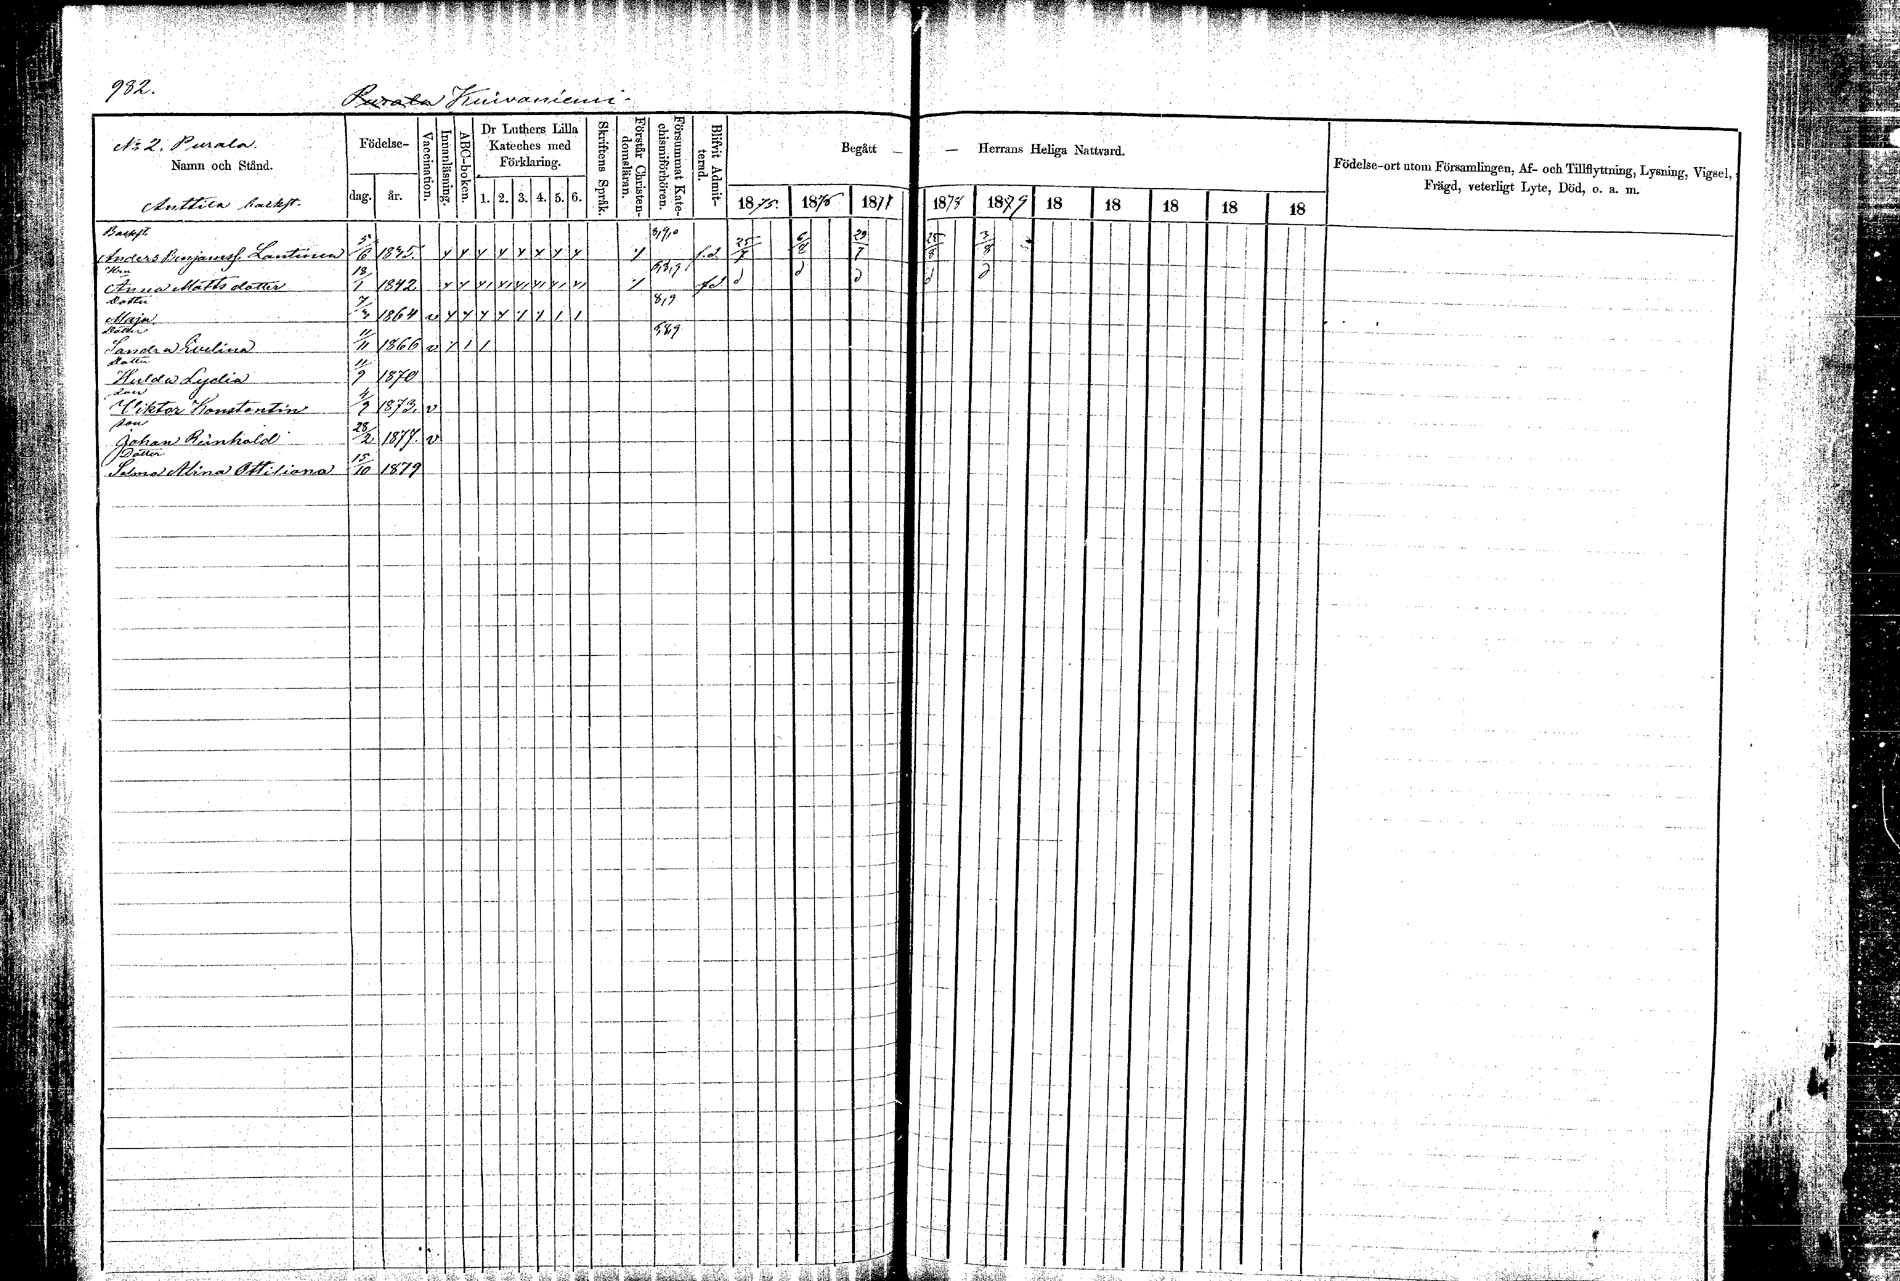 982.
Purala Kuivaniemi.
No 2. Purala
Namn och Stånd.
Anttila backst.
Födelse-
dag. år.
Vaccination.
Innanläsning.
ABC-boken.
Dr Luthers Lilla
Kateches med
Förklaring.
1. 2. 3. 4. 5. 6.
Skriftens Språk.
Förstår Christen-
domsläran.
Försummat Kate-
chismiförhören.
Blifvit Admit-
terad.
Begått — — Herrans Heliga Nattvard.
1875. 1876 1877 1878 1879 18 18 18 18 18
Födelse-ort utom Församlingen, Af- och Tillflyttning, Lysning, Vigsel,
Frägd, veterligt Lyte, Död, o. a. m.
Backst.
Anders Benjamsf. Lantinen 5/6 1845. f.d 25/7 6/8 29/7 25/8 3/8
Hru
Anna Mattsdotter 18/1 1842 fd d d d d d
Dotter
Maja 7/3 1864 v 8,9
Dotter
Sandra Evelina 11/11 1866 v 589
Dotter
Hulda Lydia 11/9 1870
Son
Viktor Konstantin 4/9 1873. v
son
Johan Reinhold 28/2 1877. v
Dotter
Selma Alina Ottiliana 15/10 1879